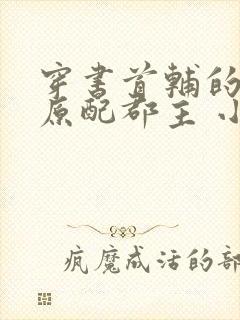 穿书首辅的
原配郡主 小
疯魔成活的部